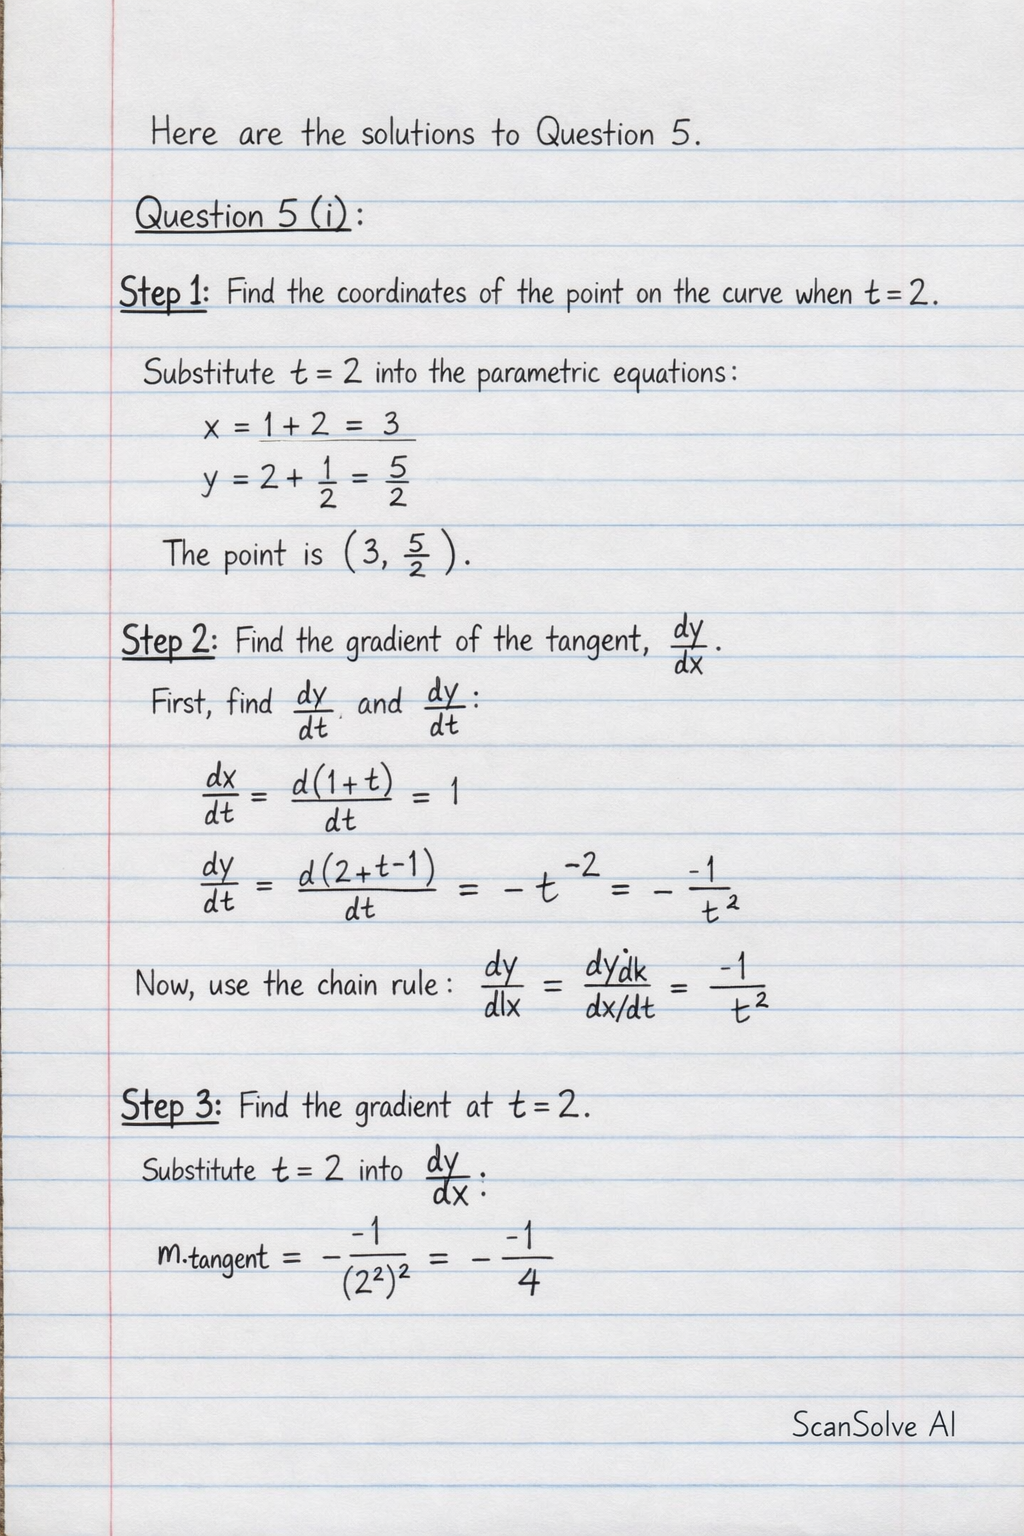 Here are the solutions to Question 5.
Question 5 (i):
Step 1: Find the coordinates of the point on the curve when t = 2.
Substitute t = 2 into the parametric equations:
x = 1 + 2 = 3
y = 2 + 1/2 = 5/2
The point is (3, 5/2).
Step 2: Find the gradient of the tangent, dy/dx.
First, find dy/dt. and dy/dt:
dx/dt = d(1+t)/dt = 1
dy/dt = d(2+t-1)/dt = -t^-2 = - -1/t²
Now, use the chain rule: dy/dlx = dydk/dx/dt = -1/t²
Step 3: Find the gradient at t = 2.
Substitute t = 2 into dy/dx:
m.tangent = - -1/(2²)² = - -1/4
ScanSolve AI